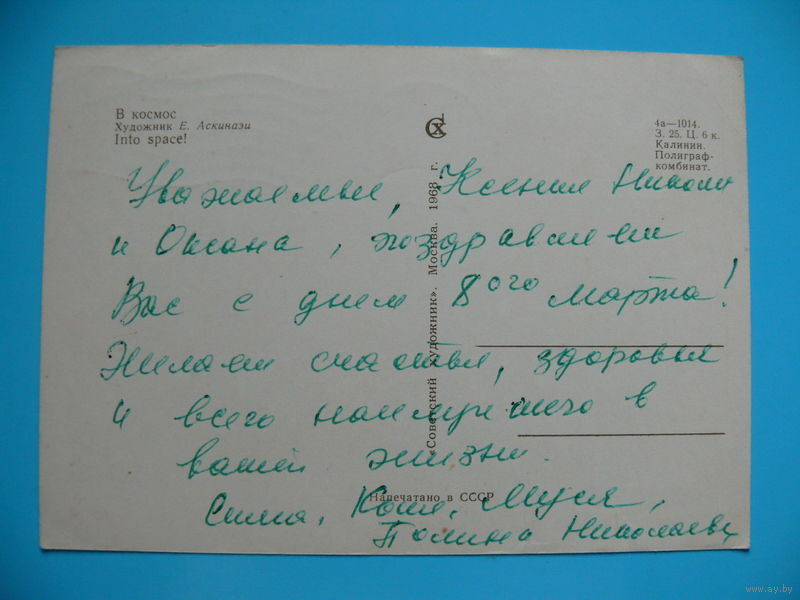 В космос
Художник Е. Аскинази
Into space!
СХ
4а—1014.
З. 25. Ц. 6 к.
Калинин.
Полиграф-
комбинат.
«Советский художник». Москва. 1968 г.
Уважаемые, Ксения Николо
и Оксана, поздравляем
Вас с днем 8ого марта!
Желаем счастья, здоровья
и всего наилучшего в
вашей жизни.
Напечатано в СССР
Сима, Коля, Муся,
Полина Николаевн
www.ay.by